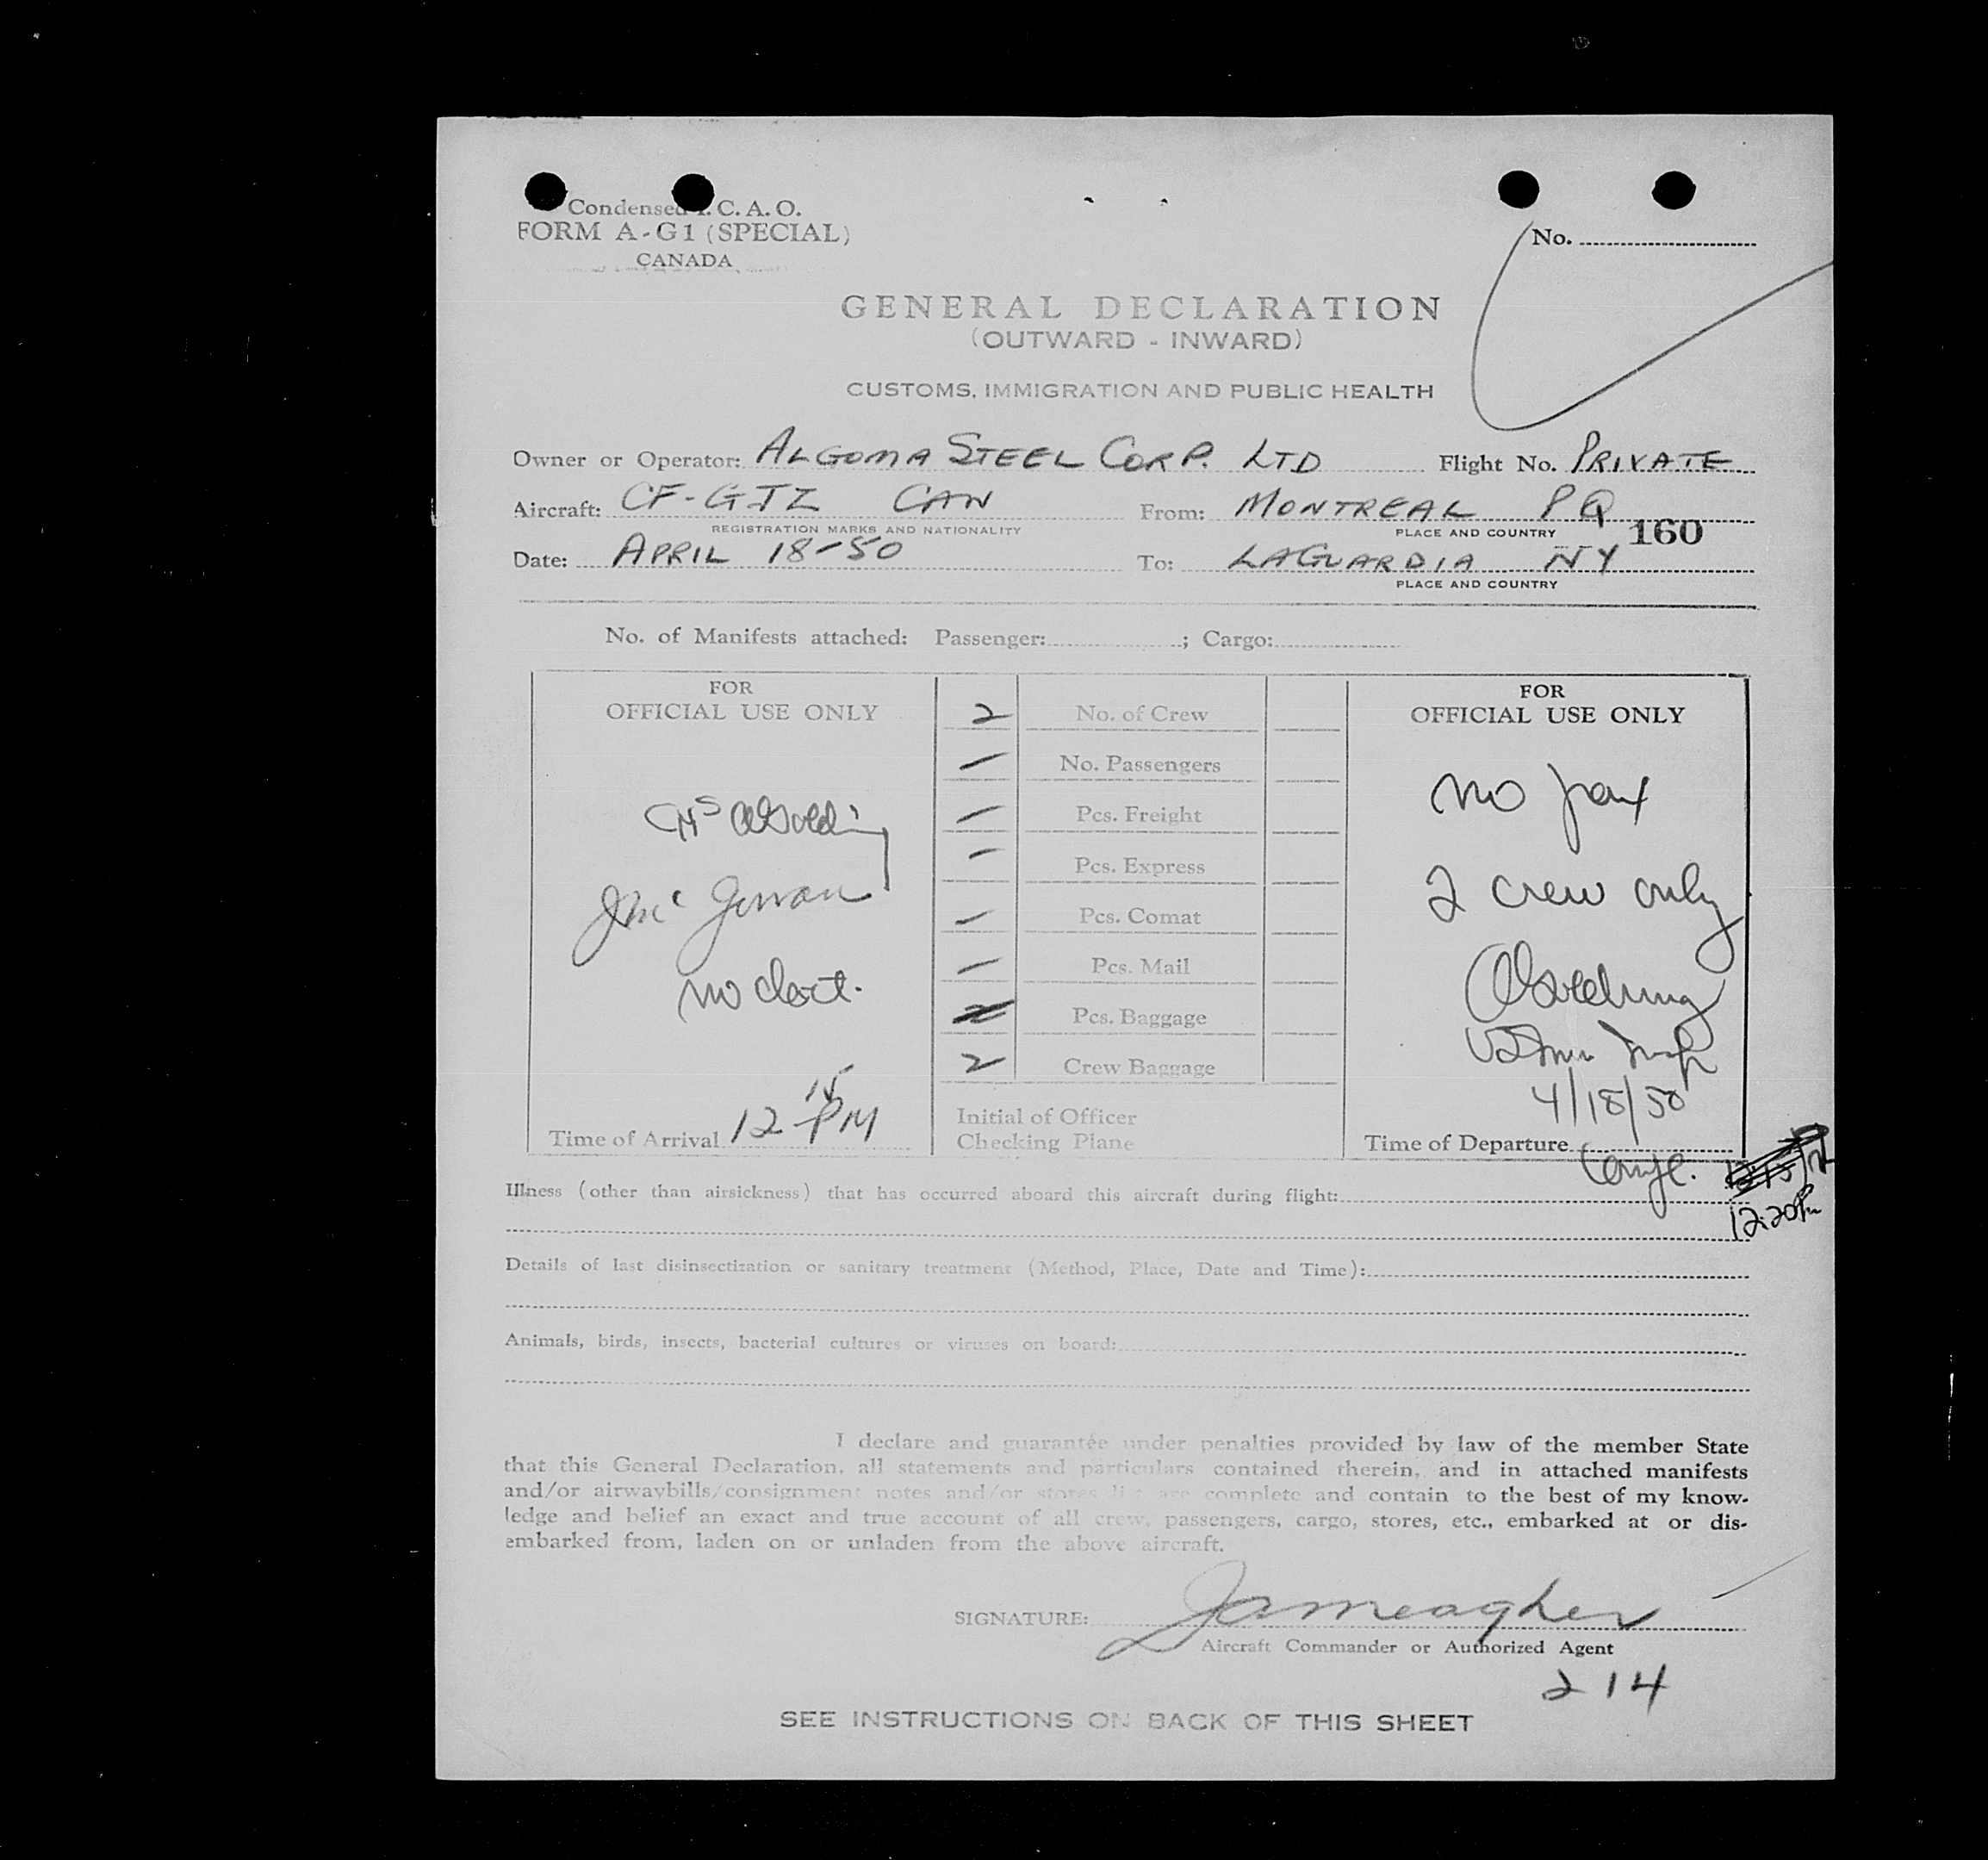 Condensed I. C. A. O.
FORM A-G1 (SPECIAL)
CANADA
No.
GENERAL DECLARATION
(OUTWARD - INWARD)
CUSTOMS, IMMIGRATION AND PUBLIC HEALTH
Owner or Operator: ALGOMA STEEL CORP. LTD Flight No. PRIVATE
Aircraft: CF-GJZ CAN From: MONTREAL PQ
REGISTRATION MARKS AND NATIONALITY PLACE AND COUNTRY 160
Date: APRIL 18-50 To: LAGUARDIA NY
PLACE AND COUNTRY
No. of Manifests attached: Passenger: ; Cargo:
FOR
OFFICIAL USE ONLY
no
Time of Arrival 12 15 PM
2 No. of Crew
– No. Passengers
– Pcs. Freight
– Pcs. Express
– Pcs. Comat
– Pcs. Mail
Pcs. Baggage
2 Crew Baggage
Initial of Officer
Checking Plane
FOR
OFFICIAL USE ONLY
no pax
2 crew only
4/18/50
Time of Departure
12:20 Pm
Illness (other than airsickness) that has occurred aboard this aircraft during flight:
Details of last disinsectization or sanitary treatment (Method, Place, Date and Time):
Animals, birds, insects, bacterial cultures or viruses on board:
I declare and guarantee under penalties provided by law of the member State
that this General Declaration, all statements and particulars contained therein, and in attached manifests
and/or airwaybills/consignment notes and/or stores list are complete and contain to the best of my know-
ledge and belief an exact and true account of all crew, passengers, cargo, stores, etc., embarked at or dis-
embarked from, laden on or unladen from the above aircraft.
SIGNATURE: Jameagher
Aircraft Commander or Authorized Agent
214
SEE INSTRUCTIONS ON BACK OF THIS SHEET